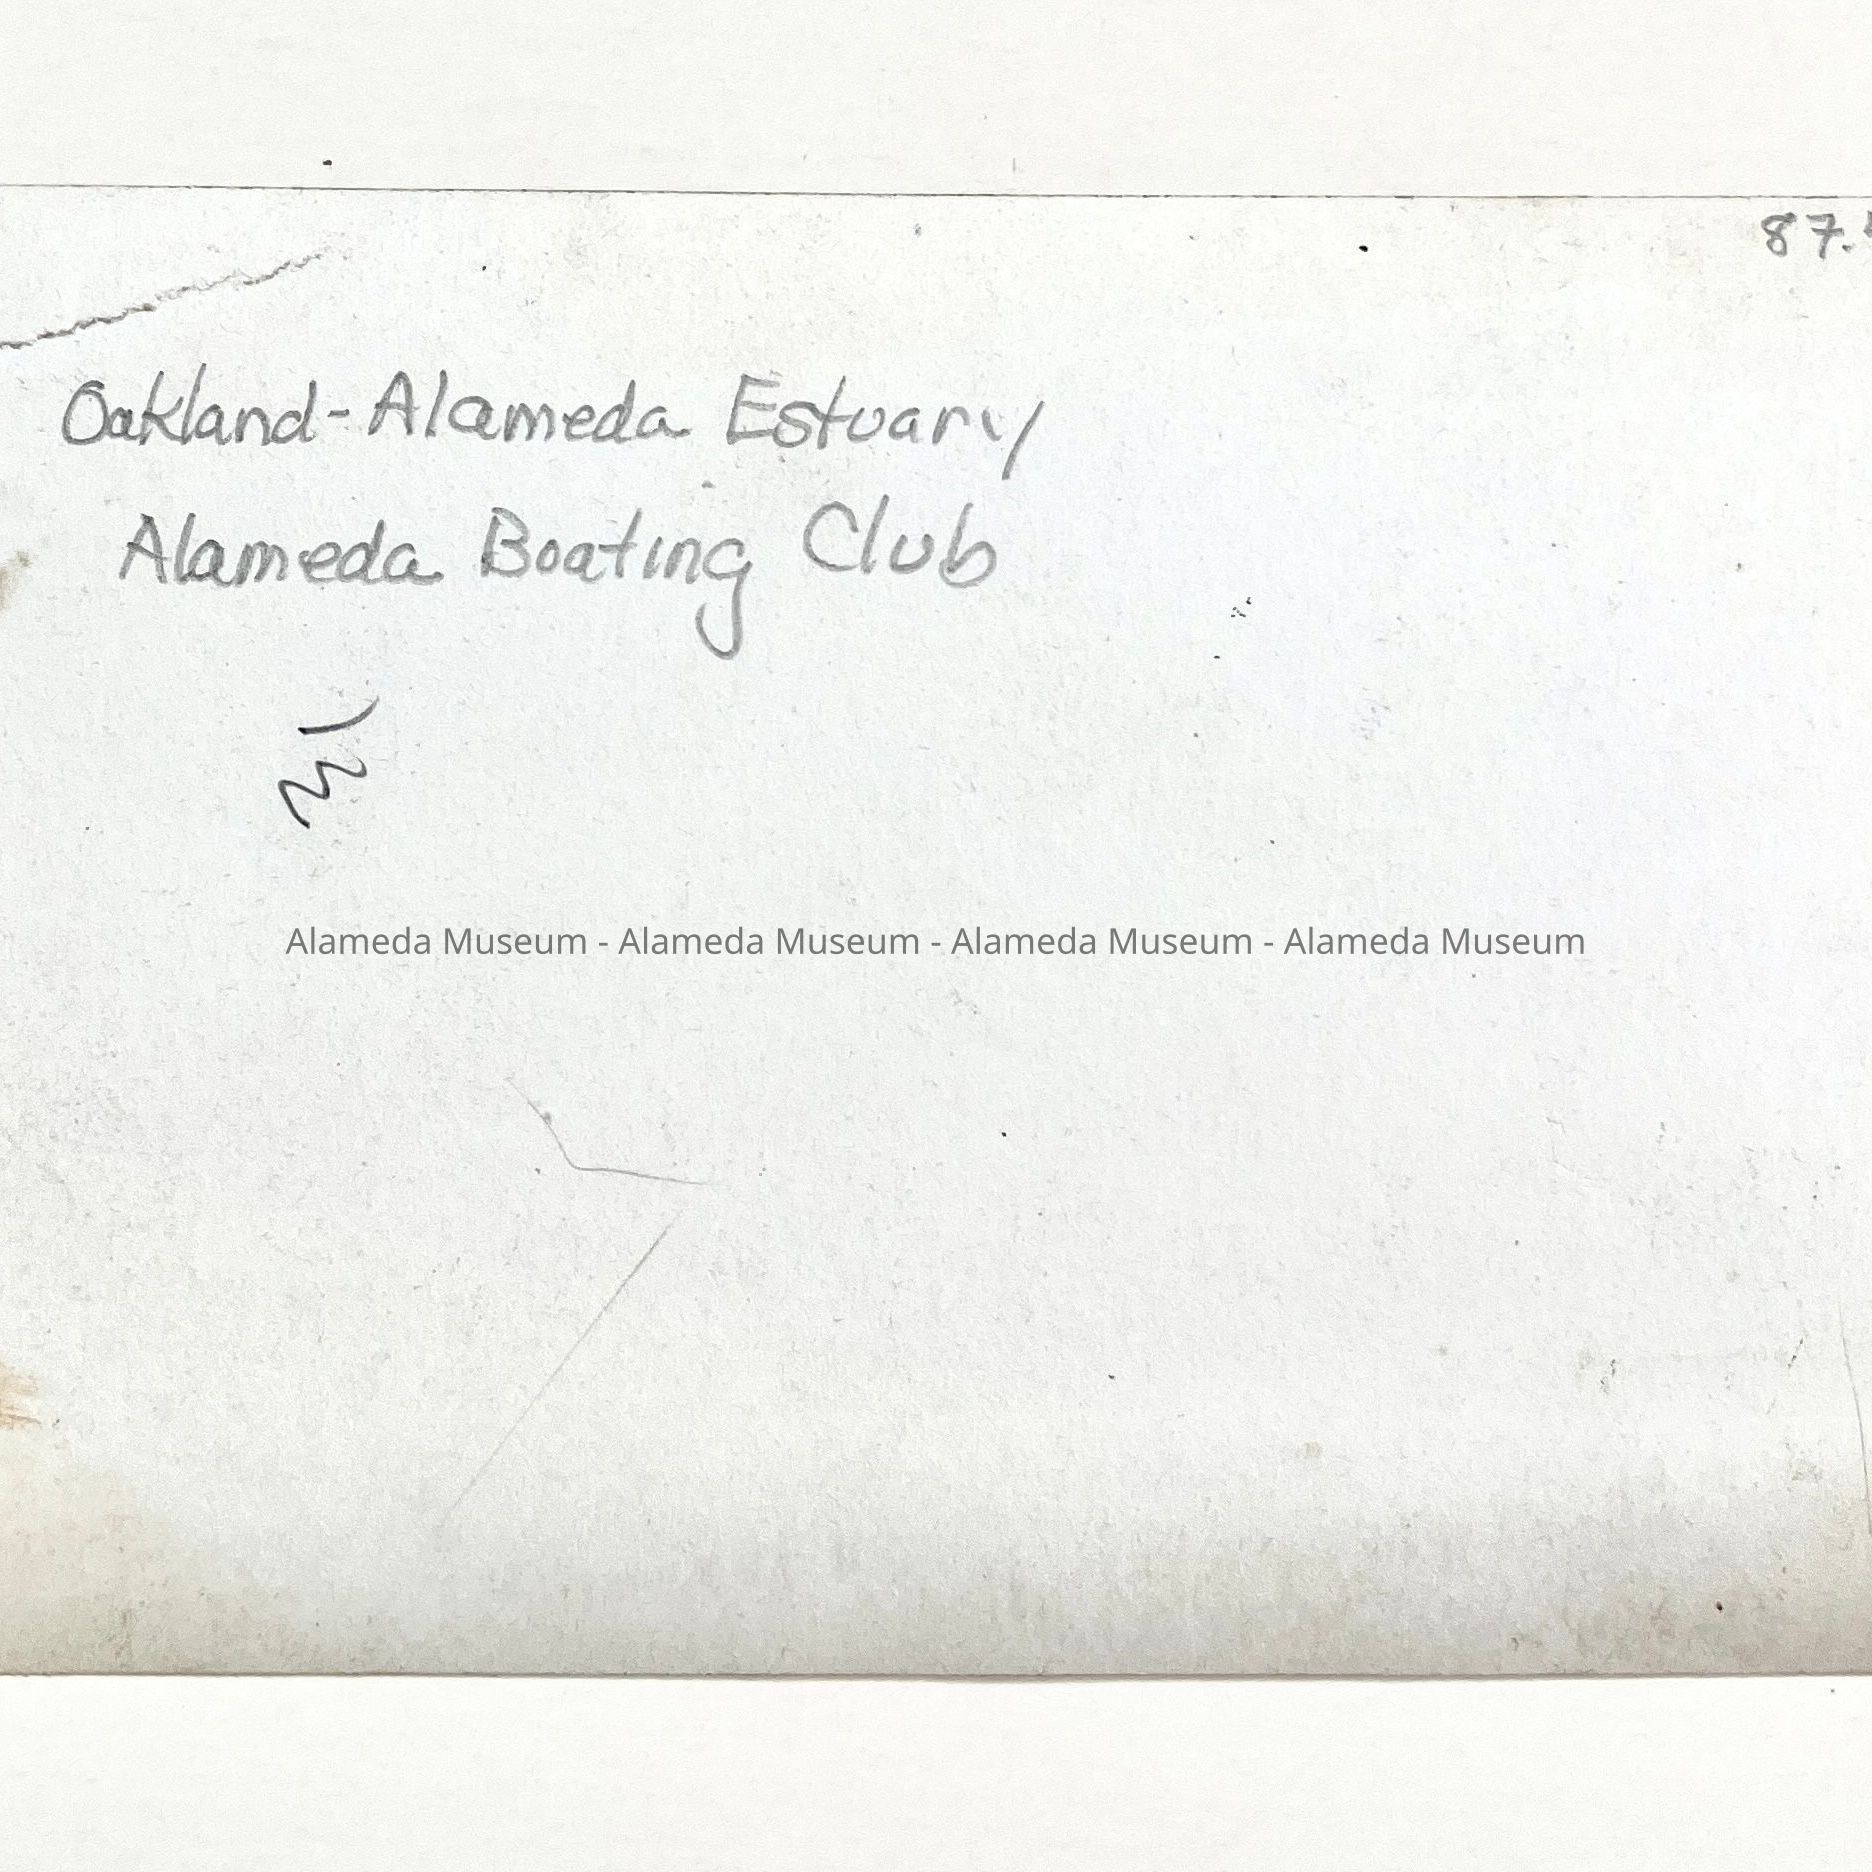 87.
Oakland-Alameda Estuary
Alameda Boating Club
Alameda Museum - Alameda Museum - Alameda Museum - Alameda Museum